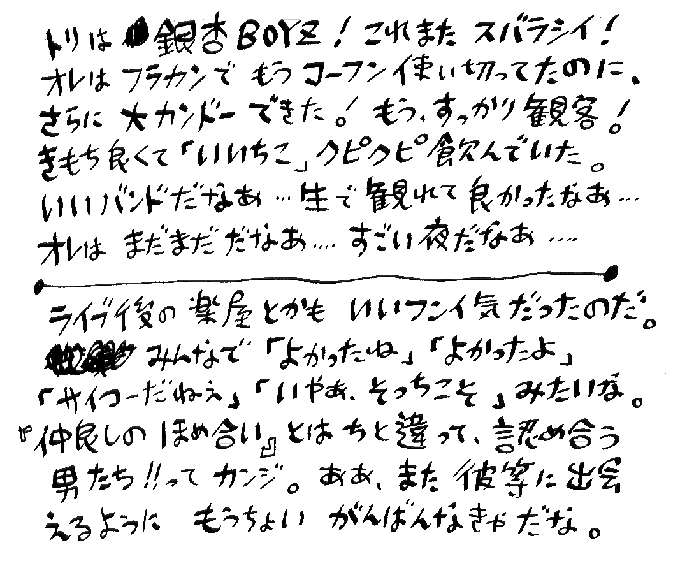 トリは 銀杏BOYZ! これまた スバラシイ!
オレは フラカンで もう コーフン使い切ってたのに、
さらに 大カンドー できた。! もう、すっかり観客!
きもち良くて「いいちこ」クピクピ飲んでいた。
いいバンドだなあ…生で観れて良かったなあ…
オレは まだまだ だなあ… すごい夜だなあ …
ライブ後の 楽屋とかも いいフンイ気だったのだ。
みんなで「よかったね」「よかったよ」
「サイコーだねぇ」「いやあ、そっちこそ」みたいな。
『仲良しの ほめ合い』とは ちと違って、認め合う
男たち!!って カンジ。ああ、また 彼等に出会
えるように もうちょい がんばんなきゃだな。